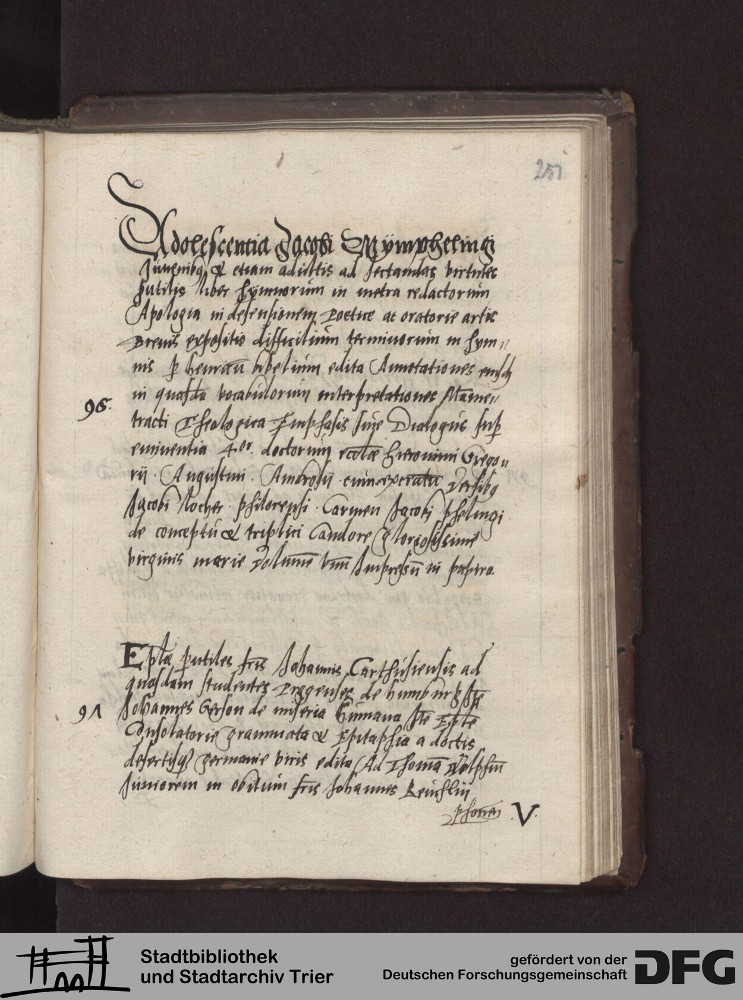 251
Adolescentia Jacobi Wÿmphelingi
Iuuenibus & etiam adultis ad sectandas virtutes
putilis Liber hymnorum in metra redactorum
Apologia in defensionem poetice ac oratorie artis
Breuis expositio difficilium terminorum in hym„
nis p henricu edita Annotationes eiusdem
in quasda vocabulorum interpretationes
96.
tracti Theologica Emphasis siue Dialogus sup
eminentia 4or doctorum eccle hieronimi Grego„
rii . Augustini . Ambrosii . Versibus
Jacobi Locher . philomusi . Carmen Jacobi
de conceptu & triplici Candore gloriosissime
virginis marie Volume vnu Impressu in papiro.
Eple putiles fris Johannis Carthusiensis ad
quosdam studentes de
Johannes Gerson de miseria humana Ite Eple
97
Consolatorie & Epitaphia a doctis
germanie viris edita Ad Thoma Wolphiu
Iuniorem in obitum fris Johannes Reuchlin
V.
Stadtbibliothek
und Stadtarchiv Trier
gefördert von der
Deutschen Forschungsgemeinschaft
DFG